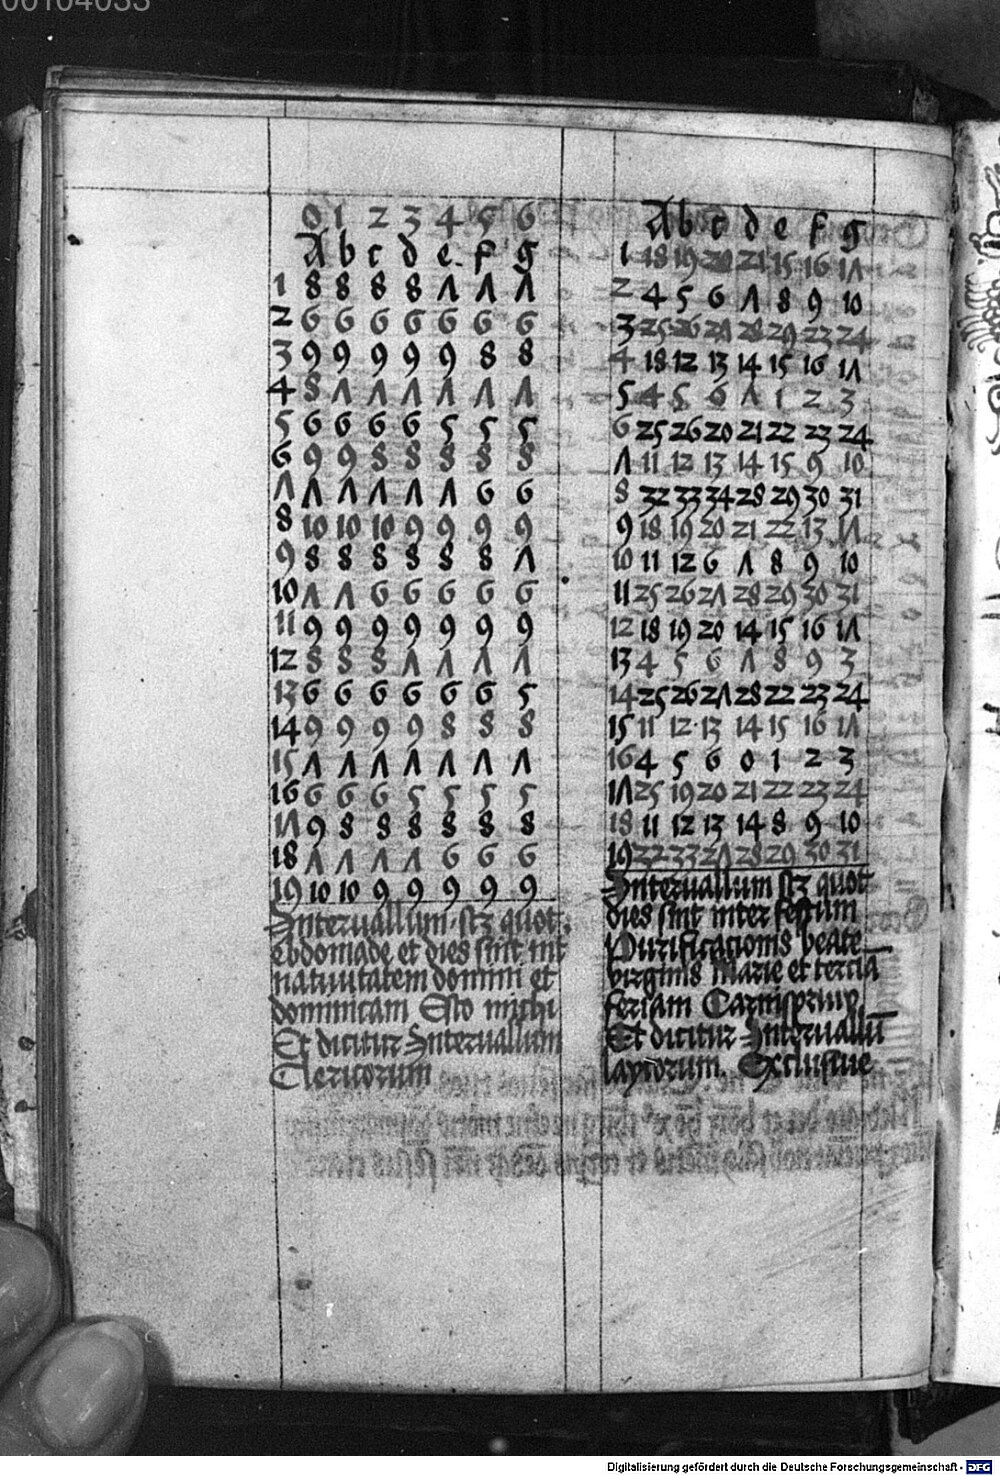 00104033
0 1 2 3 4 5 6
A b c d e f g
1 8 8 8 8 Λ Λ Λ
2 6 6 6 6 6 6 6
3 9 9 9 9 9 8 8
4 8 Λ Λ Λ Λ Λ Λ
5 6 6 6 6 5 5 5
6 9 9 8 8 8 8 8
Λ Λ Λ Λ Λ Λ 6 6
8 10 10 10 9 9 9 9
9 8 8 8 8 8 8 Λ
10 Λ Λ 6 6 6 6 6
11 9 9 9 9 9 9 9
12 8 8 8 Λ Λ Λ Λ
13 6 6 6 6 6 6 5
14 9 9 9 9 8 8 8
15 Λ Λ Λ Λ Λ Λ Λ
16 6 6 6 5 5 5 5
1Λ 9 8 8 8 8 8 8
18 Λ Λ Λ Λ 6 6 6
19 10 10 9 9 9 9 9
Interuallum scz quot
ebdomade et dies sint int
natiuitatem domini et
dominicam Esto michi
Et dicitur Interuallum
Clericorum
A b c d e f g
1 18 19 20 21 15 16 1Λ
2 4 5 6 Λ 8 9 10
3 25 26 2Λ 28 29 23 24
4 18 12 13 14 15 16 1Λ
5 4 5 6 Λ 1 2 3
6 25 26 20 21 22 23 24
Λ 11 12 13 14 15 9 10
8 32 33 34 28 29 30 31
9 18 19 20 21 22 13 1Λ
10 11 12 6 Λ 8 9 10
11 25 26 2Λ 28 29 30 31
12 18 19 20 14 15 16 1Λ
13 4 5 6 Λ 8 9 3
14 25 26 2Λ 28 22 23 24
15 11 12 13 14 15 16 1Λ
16 4 5 6 0 1 2 3
1Λ 25 19 20 21 22 23 24
18 11 12 13 14 8 9 10
19 32 33 2Λ 28 29 30 31
Interuallum scz quot
dies sint inter festum
Purificationis beate
virginis Marie et tercia
feriam Carnispriuy
Et dicitur Interuallū
laycorum. Exclusiue
Digitalisierung gefördert durch die Deutsche Forschungsgemeinschaft - DFG